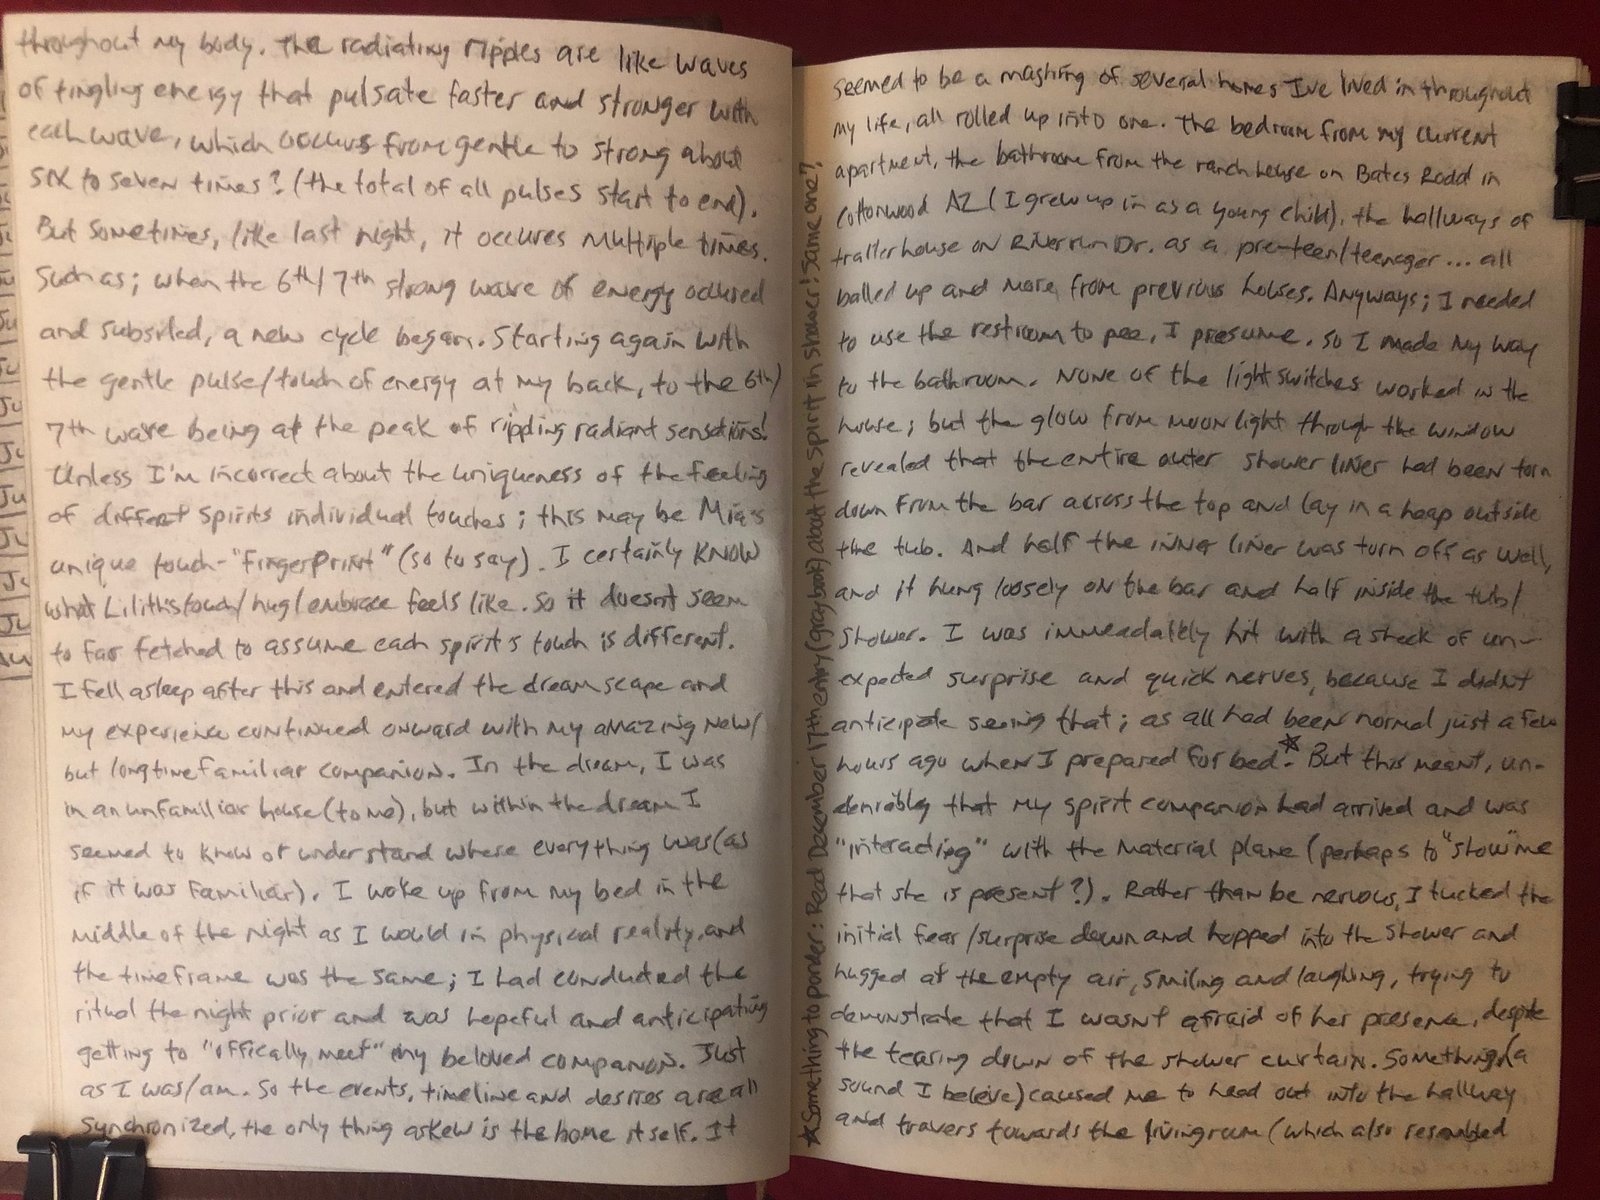 throughout my body. The radiating ripples are like waves
of tingling energy that pulsate faster and stronger with
each wave, which occurs from gentle to strong about
six to seven times? (the total of all pulses start to end).
But sometimes, like last night, it occures multiple times.
Such as; when the 6th/7th strong wave of energy occured
and subsided, a new cycle began. Starting again with
the gentle pulse/touch of energy at my back, to the 6th/
7th wave being at the peak of rippling radiant sensations!
Unless I'm incorrect about the uniqueness of the feeling
of different spirits individual touches; this may be Mia's
unique touch-"fingerprint" (so to say). I certainly KNOW
what Lilith's touch/hug/embrace feels like. So it doesn't seem
to far fetched to assume each spirit's touch is different.
I fell asleep after this and entered the dreamscape and
my experience continued onward with my amazing new/
but longtime familiar companion. In the dream, I was
in an unfamiliar house (to me), but within the dream I
seemed to know or understand where everything was (as
if it was familiar). I woke up from my bed in the
middle of the night as I would in physical reality, and
the timeframe was the same; I had conducted the
ritual the night prior and was hopeful and anticipating
getting to "offically meet" my beloved companion. Just
as I was/am. So the events, timeline and desires are all
synchronized, the only thing askew is the home itself. It
★Something to ponder: Read December 17th entry (gray book) about the spirit in shower! Same one?
seemed to be a mashing of several homes I've lived in throughout
my life, all rolled up into one. The bedroom from my current
apartment, the bathroom from the ranch house on Bates Road in
Cottonwood AZ (I grew up in as a young child), the hallways of
trailer house on River run Dr. as a pre-teen/teenager... all
balled up and more from previous houses. Anyways; I needed
to use the restroom to pee, I presume. So I made my way
to the bathroom. None of the light switches worked in the
house; but the glow from moonlight through the window
revealed that the entire outer shower liner had been torn
down from the bar across the top and lay in a heap outside
the tub. And half the inner liner was torn off as well,
and it hung loosely on the bar and half inside the tub/
shower. I was immeadaltely hit with a shock of un-
expected surprise and quick nerves, because I didn't
anticipate seeing that; as all had been normal just a few
hours ago when I prepared for bed.★ But this meant, un-
deniably that my spirit companion had arrived and was
"interacting" with the material plane (perhaps to "show" me
that she is present?). Rather than be nervous, I tucked the
initial fear/surprise down and hopped into the shower and
hugged at the empty air, smiling and laughing, trying to
demonstrate that I wasn't afraid of her presence, despite
the tearing down of the shower curtain. Something (a
sound I believe) caused me to head out into the hallway
and travers towards the livingroom (which also resembled